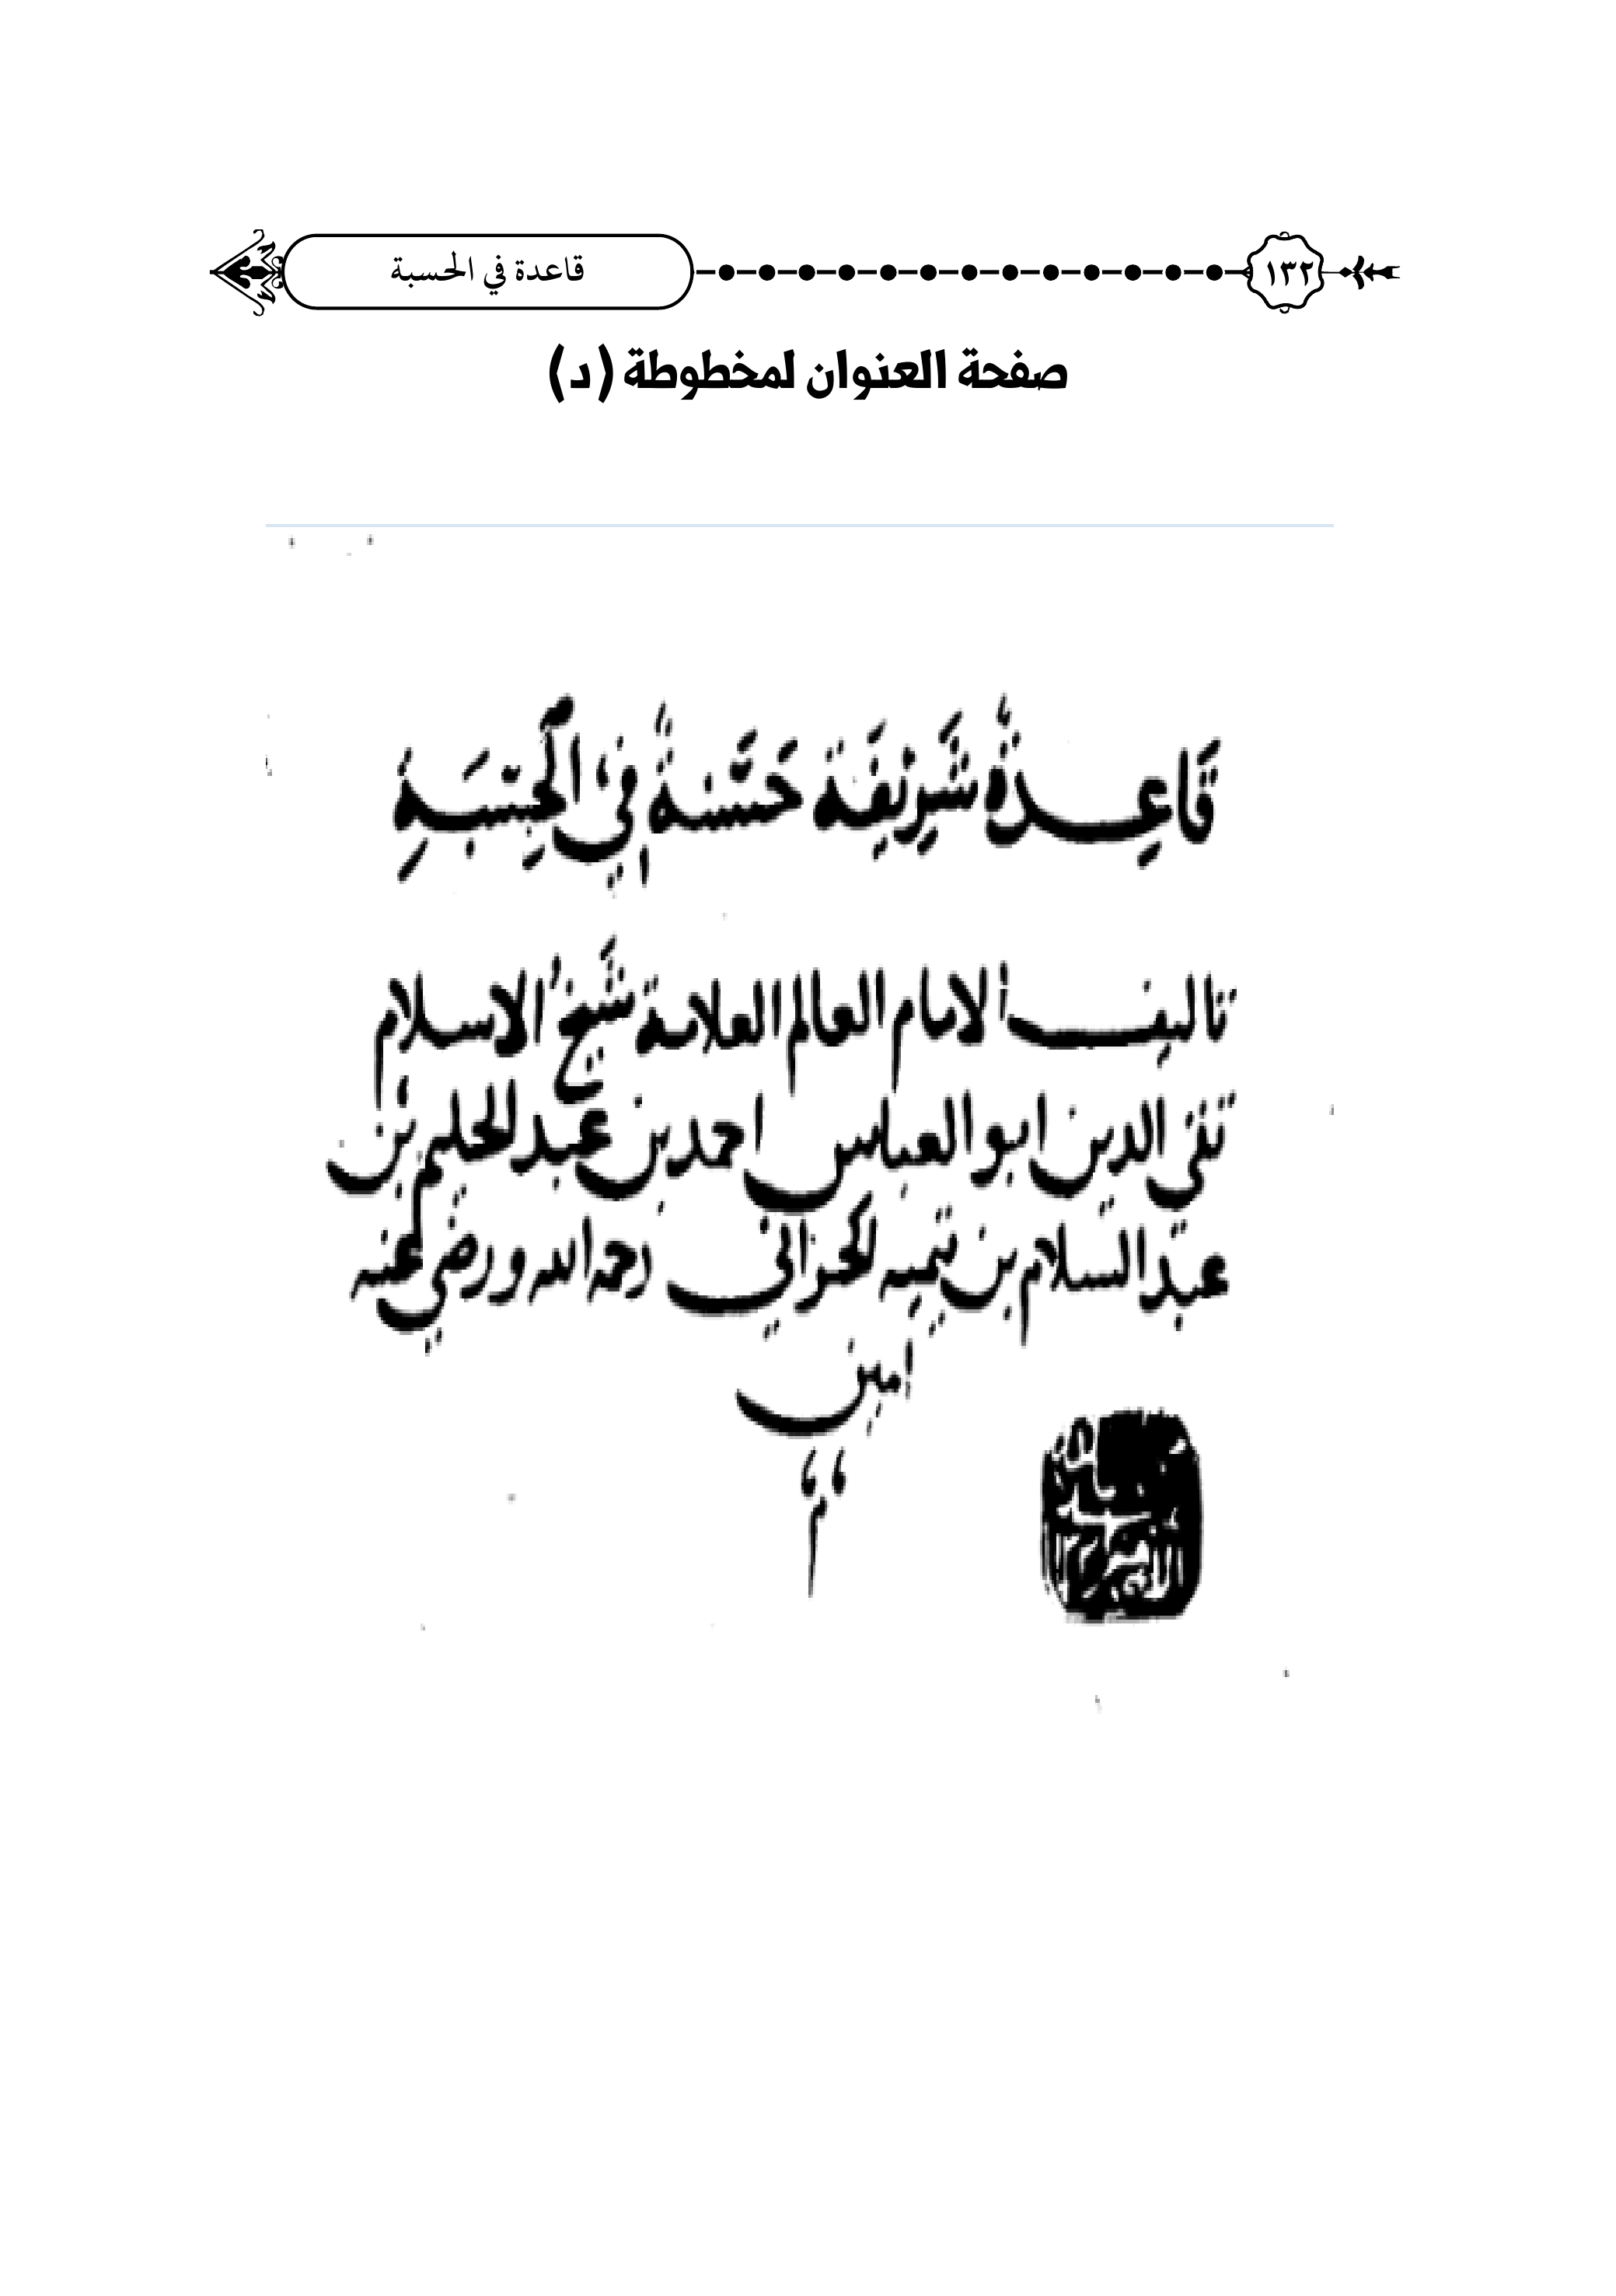 ١٣٢
قاعدة في الحسبة
صفحة العنوان لمخطوطة (د)
قَاعِدةٌ شَرِيْفَة حَسَنةٌ فِي الْحِسْبَةِ
تاليف الامام العالم العلامة شَيخ الاسلام
تقي الدين ابو العباس احمد بن عبد الحليم بن
عبد السلام بن تيميه الحراني رحمه الله ورضي عنه
امين